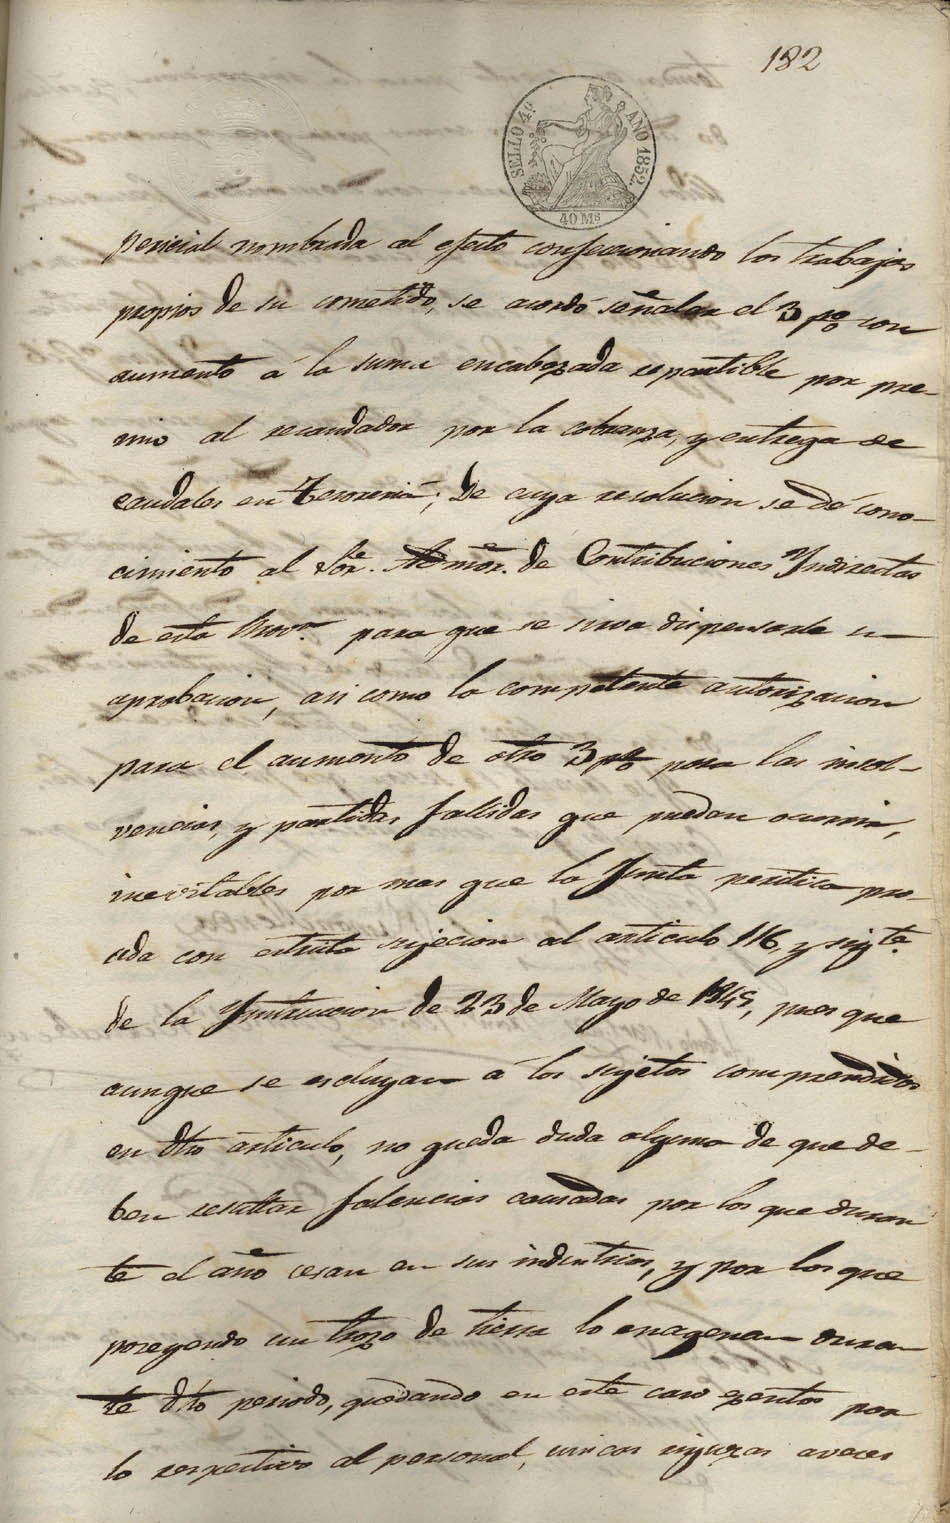 182
SELLO 4º AÑO 1852.
40 Mˢ
pericial nombrada al efecto confeccionando los trabajos
propios de su cometido, se acordó señalar el 3 pº con
aumento á la suma encabezada repartible por pre-
mio al recaudador por la cobranza, y entrega de
caudales en Tesoreria; de cuya resolucion se dé cono-
cimiento al Sor. Admor. de Contribuciones Yndirectas
de esta Provª para que se sirva dispensarle su
aprobacion, asi como la competente autorizacion
para el aumento de otro 3 pº para las insol-
vencias, y partidas fallidas que puedan ocurrir,
inevitables por mas que la Junta peritica pro-
ceda con estricta sujecion al articulo 116, y sigte.
de la Ynstruccion de 23 de Mayo de 1845, pues que
aunque se escluyan á los sujetos comprendidos
en dho articulo, no queda duda alguna de que de-
ben resultar falencias causadas por los que duran
te el año cesan en sus industrias, y por los que
poseyendo un trozo de tierra lo enagenan duran
te dho periodo, quedando en este caso exentos por
lo respectivo al personal, unicas riquezas aveces